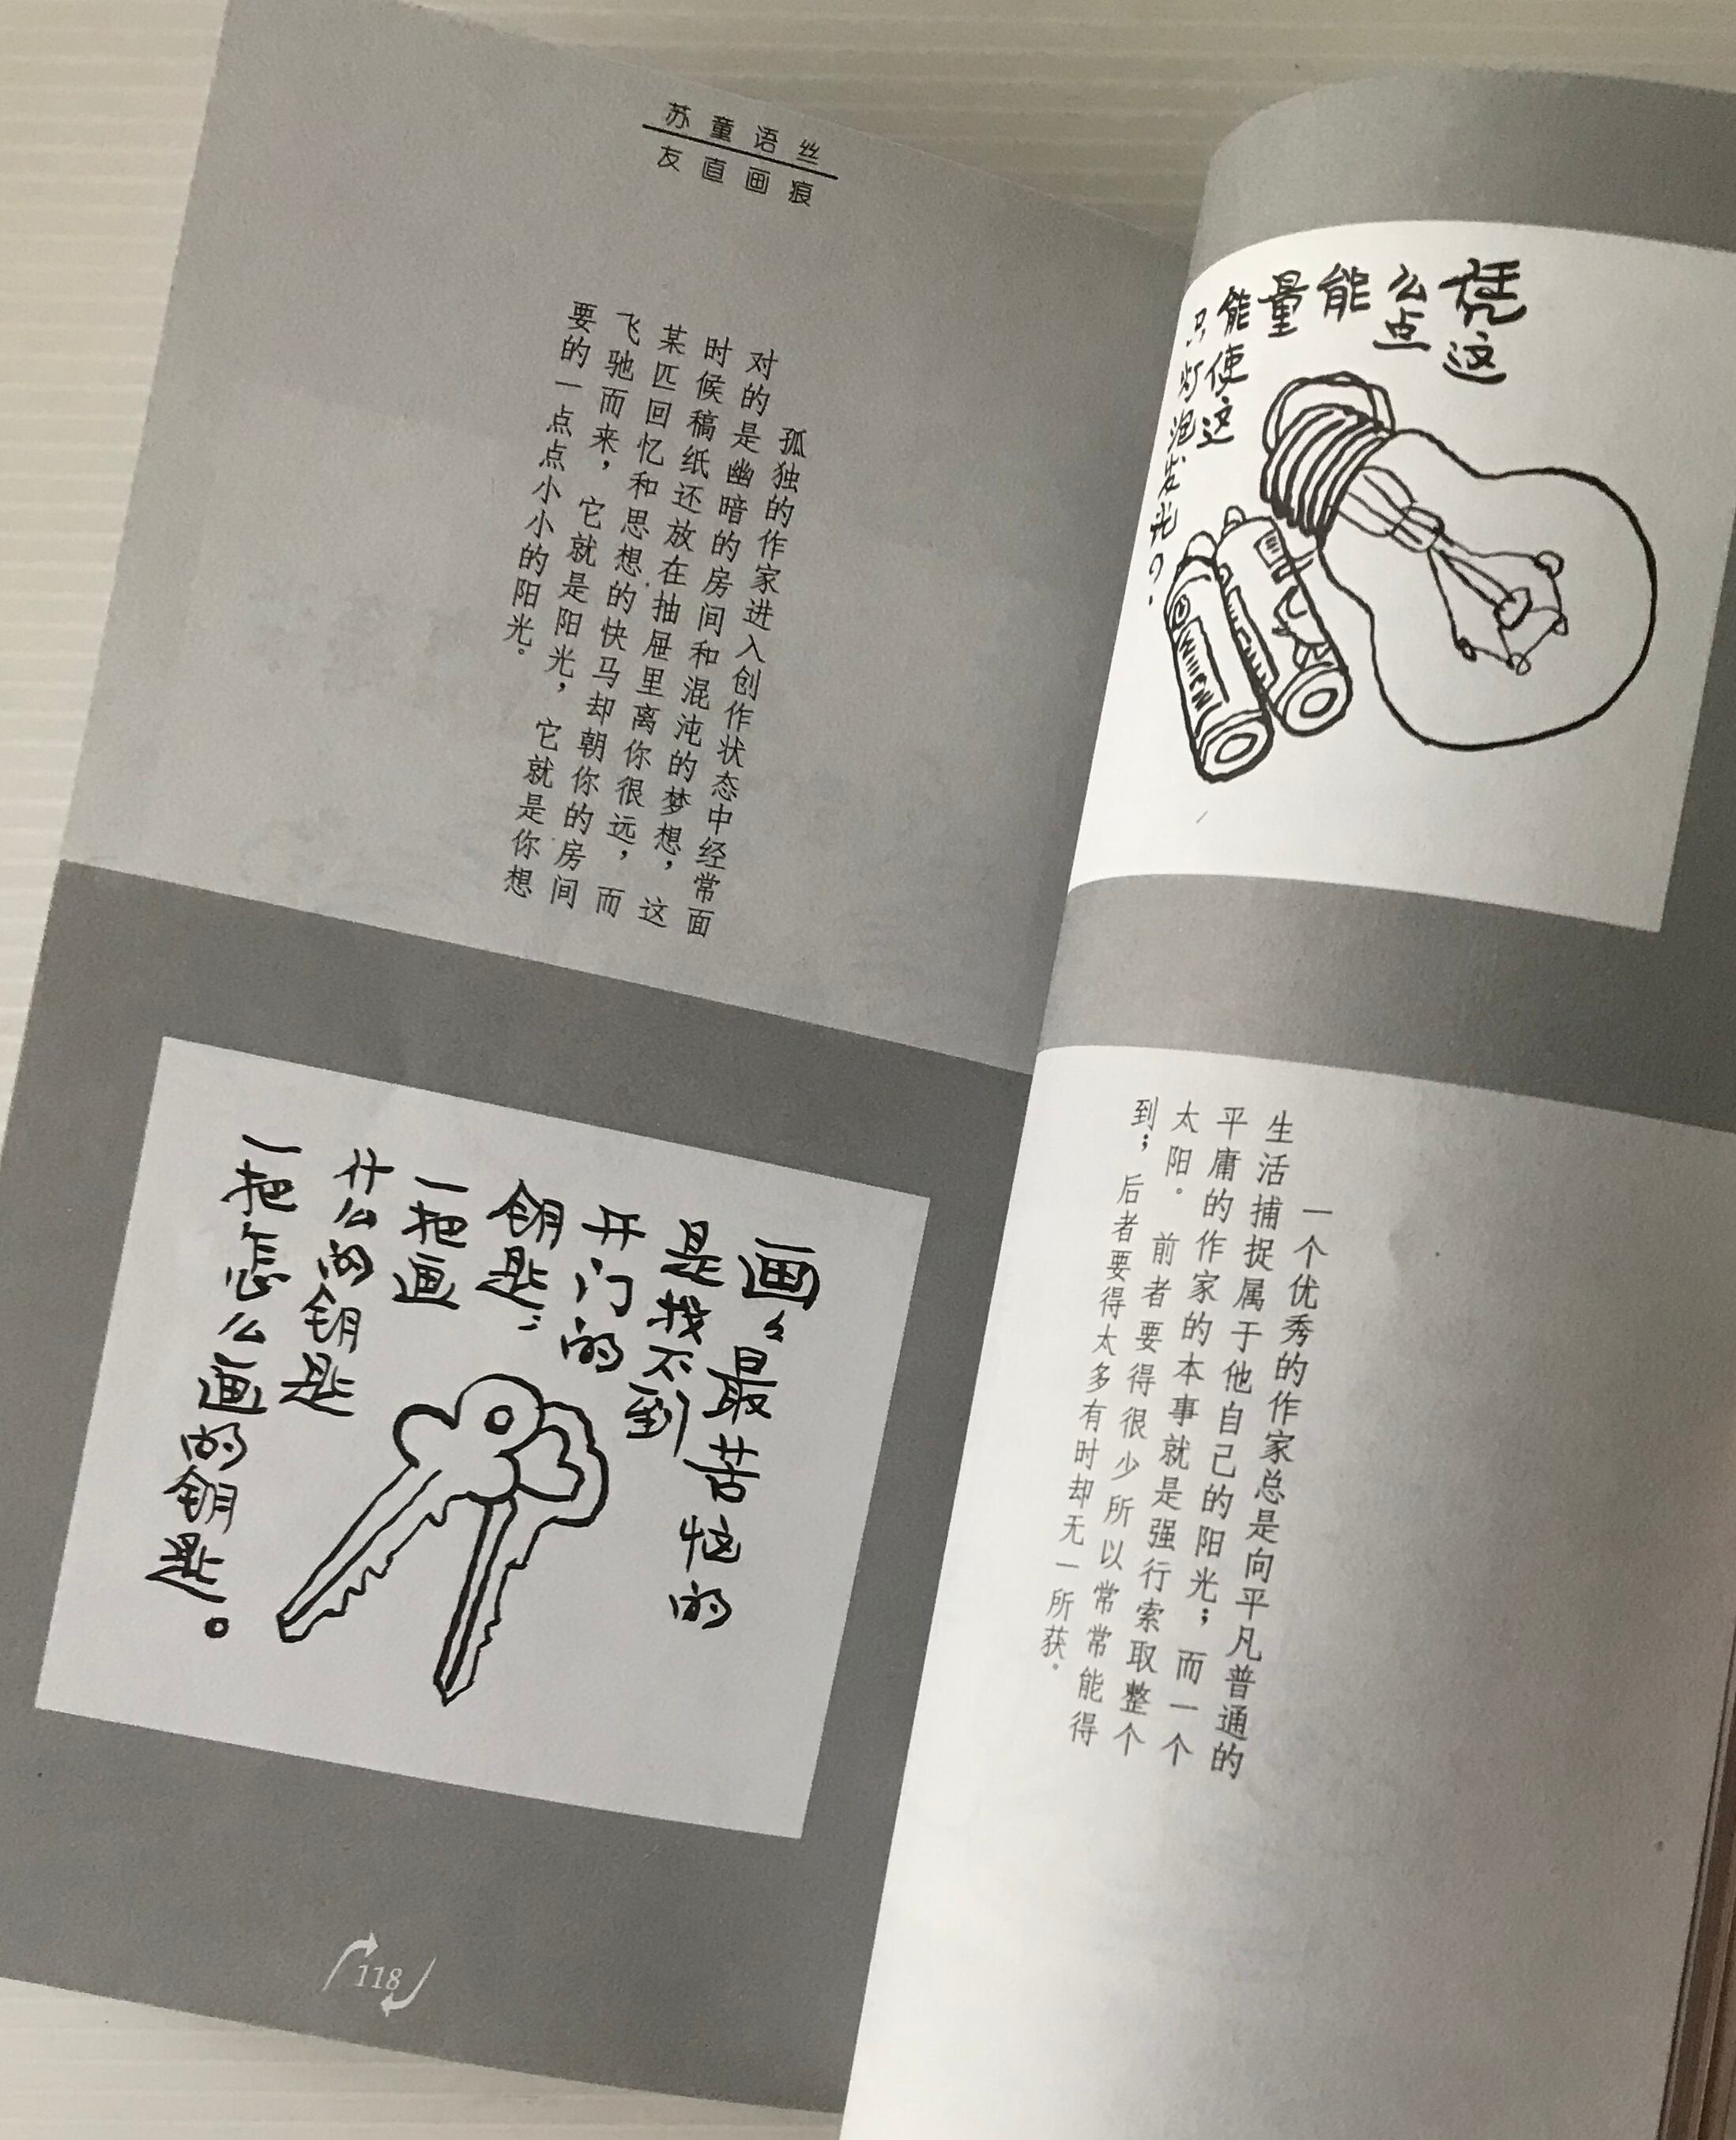 苏童语丝
友直画痕
孤独的作家进入创作状态中经常面
对的是幽暗的房间和混沌的梦想，这
时候稿纸还放在抽屉里离你很远，而
某匹回忆和思想的快马却朝你的房间
飞驰而来，它就是阳光，它就是你想
要的一点点小小的阳光。
画々最苦恼的
是找不到
开门的
钥匙：
一把画
什么的钥匙
一把怎么画的钥匙。
118
凭这
么点
能
量
能使这
只灯泡发光？
一个优秀的作家总是向平凡普通的
生活捕捉属于他自己的阳光；而一个
平庸的作家的本事就是强行索取整个
太阳。前者要得很少所以常常能得
到；后者要得太多有时却无一所获。